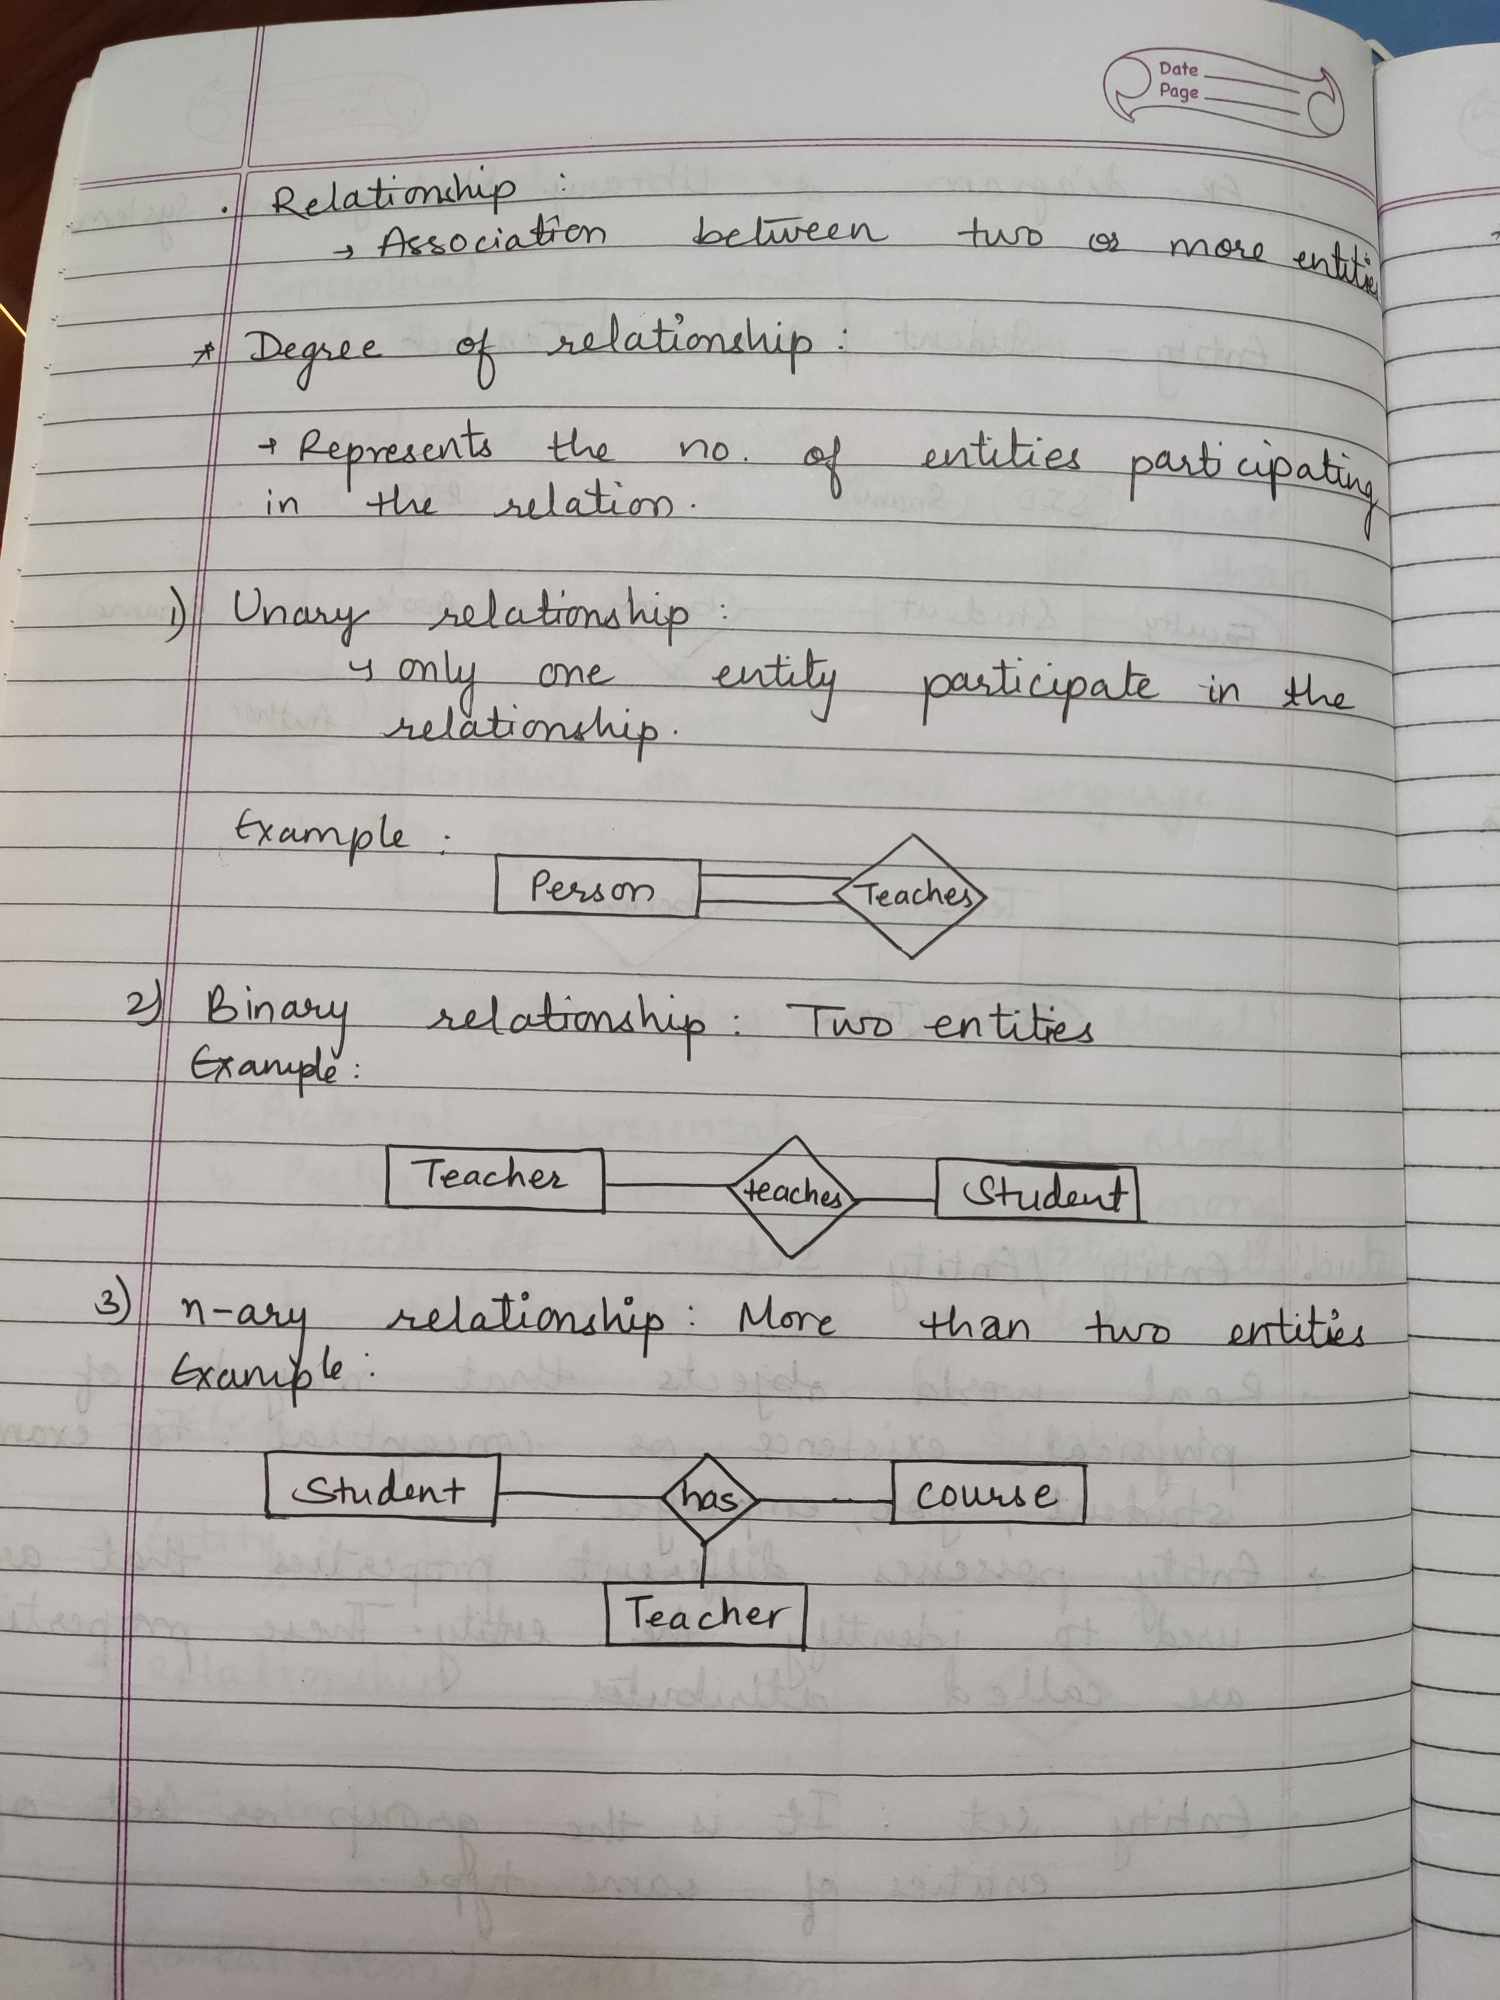 Date
Page
. Relationship :
→ Association between two or more entitie
* Degree of relationship :
→ Represents the no. of entities participating
in the relation.
1) Unary relationship :
↳ only one entity participate in the
relationship.
Example :
Person Teaches
2) Binary relationship : Two entities
Example :
Teacher teaches Student
3) n-ary relationship : More than two entities
Example :
Student has course
Teacher